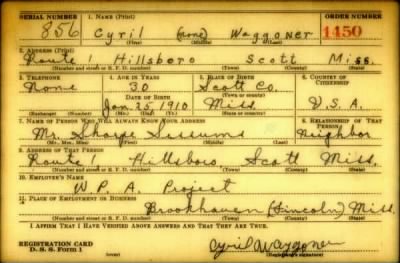 SERIAL NUMBER 1. NAME (Print) ORDER NUMBER
856 Cyril (none) Waggoner 1450
(First) (Middle) (Last)
2. ADDRESS (Print)
Route 1 Hillsboro Scott Miss.
(Number and street or R. F. D. number) (Town) (County) (State)
3. TELEPHONE 4. AGE IN YEARS 5. PLACE OF BIRTH 6. COUNTRY OF CITIZENSHIP
None 30 Scott Co.
DATE OF BIRTH (Town or county)
Jan. 25, 1910 Miss. U.S.A.
(Exchange) (Number) (Mo.) (Day) (Yr.) (State or country)
7. NAME OF PERSON WHO WILL ALWAYS KNOW YOUR ADDRESS 8. RELATIONSHIP OF THAT PERSON
Mr. Sharpe Sessums Neighbor
9. ADDRESS OF THAT PERSON
Route 1 Hillsboro Scott Miss.
(Number and street or R. F. D. number) (Town) (County) (State)
10. EMPLOYER'S NAME
W.P.A. Project
11. PLACE OF EMPLOYMENT OR BUSINESS
Brookhaven (Lincoln) Miss.
(Number and street or R. F. D. number) (Town) (County) (State)
I AFFIRM THAT I HAVE VERIFIED ABOVE ANSWERS AND THAT THEY ARE TRUE.
REGISTRATION CARD
D. S. S. FORM 1 Cyril Waggoner
(Registrant's signature)